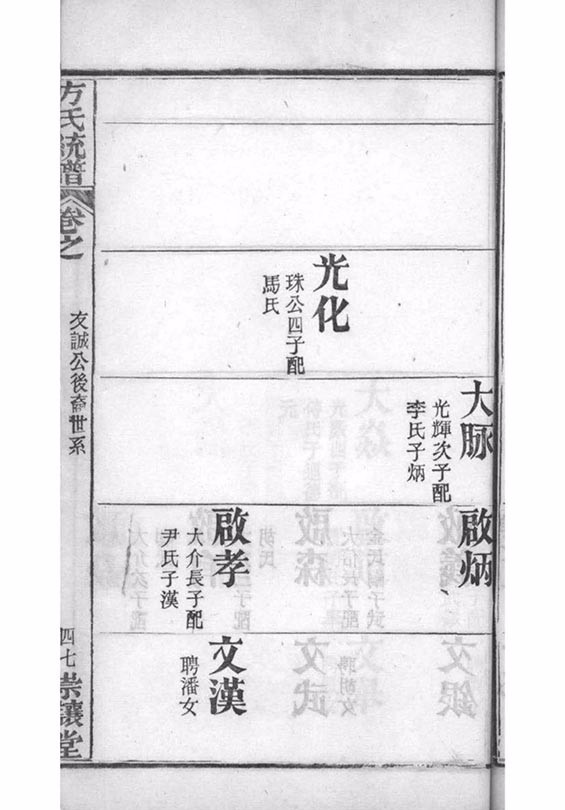 大脉
光輝次子配
李氏子炳
啟炳
光化
珠公四子配
馬氏
啟孝
大介長子配
尹氏子漢
文漢
聘潘女
方氏統譜
卷之
友誠公後裔世系
四七
崇讓堂